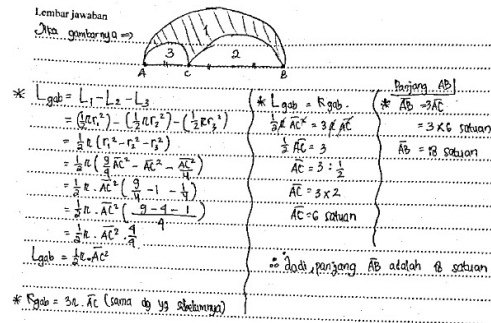 Lembar jawaban
Jika gambarnya =>
1
3
2
A
C
B
* L gab = L₁ - L₂ - L₃
= (½πr₁²) - (½πr₂²) - (½πr₃²)
= ½π (r₁² - r₂² - r₃²)
= ½π (9/4 AC² - AC² - AC²/4)
= ½π . AC² (9/4 - 1 - 1/4)
= ½π . AC² (9-4-1/4)
= ½π . AC² . 4/4
L gab = ½π . AC²
* Kgab = 3π . AC (sama dg yg sebelumnya)
* L gab = Kgab.
½π AC² = 3π AC
½ AC = 3
AC = 3 : ½
AC = 3 x 2
AC = 6 satuan
Panjang AB
* AB = 3AC
= 3 x 6 satuan
AB = 18 satuan
∴ Jadi, panjang AB adalah 18 satuan